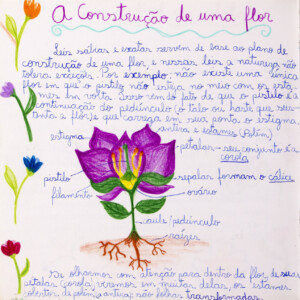 A Construção de uma flor
Leis sábias e exatas servem de base ao plano de
construção de uma flor, e nessas leis a natureza não
tolera exceções. Por exemplo; não existe uma única
flor em que o pistilo não esteja no meio com os esta-
mes em volta. Isso vem do fato de que o pistilo é a
continuação do pedúnculo (o talo ou haste que sus-
tenta a flor), e que carrega em sua ponta o estigma.
antera e estames (Pólen)
estigma
pétalas - seu conjunto é a
corola
pistilo
sépalas formam o cálice
filamento
ovário
caule/pedúnculo
raízes
Se olharmos com atenção para dentro da flor de suas
pétalas (corola) veremos em muitas delas, os estames
cobertos de pólen
são folhas transformadas.